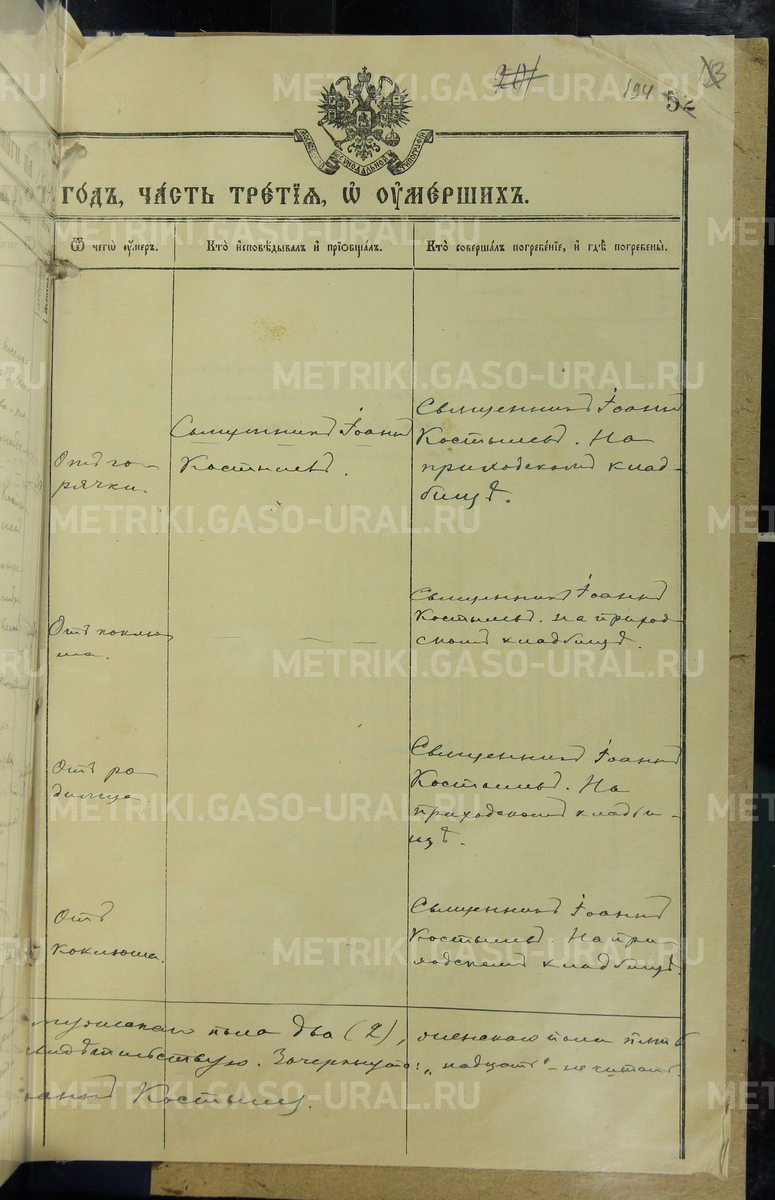 METRIKI.GASO-URAL.RU
201
194
52
СИНОДАЛЬНОЙ
ГО́ДЪ, ЧА́СТЬ ТРЕ́ТІЯ, Ѡ҆ ОУ҆МЕ́РШИХЪ.
Ѿ чегѡ̀ оу҆́меръ.
Кто̀ и҆сповѣ́дывалъ и҆ прїѻбща́лъ.
Кто̀ соверша́лъ погребе́нїе, и҆ гдѣ̀ погребены̀.
Отъ го-
рячки.
Священникъ Іоаннъ
Костылевъ.
Священникъ Іоаннъ
Костылевъ. На
приходскомъ клад-
бищѣ.
Отъ коклю
ша.
Священникъ Іоаннъ
Костылевъ. На приход-
скомъ кладбищѣ.
Отъ ро-
димца.
Священникъ Іоаннъ
Костылевъ. На
приходскомъ кладби-
щѣ.
Отъ
коклюша.
Священникъ Іоаннъ
Костылевъ. На при-
ходскомъ кладбищѣ
мужскаго пола два (2), женскаго пола пять
свидѣтельствую. Зачеркнуто: „надцать“ - не читать.
Іоаннъ Костылевъ.